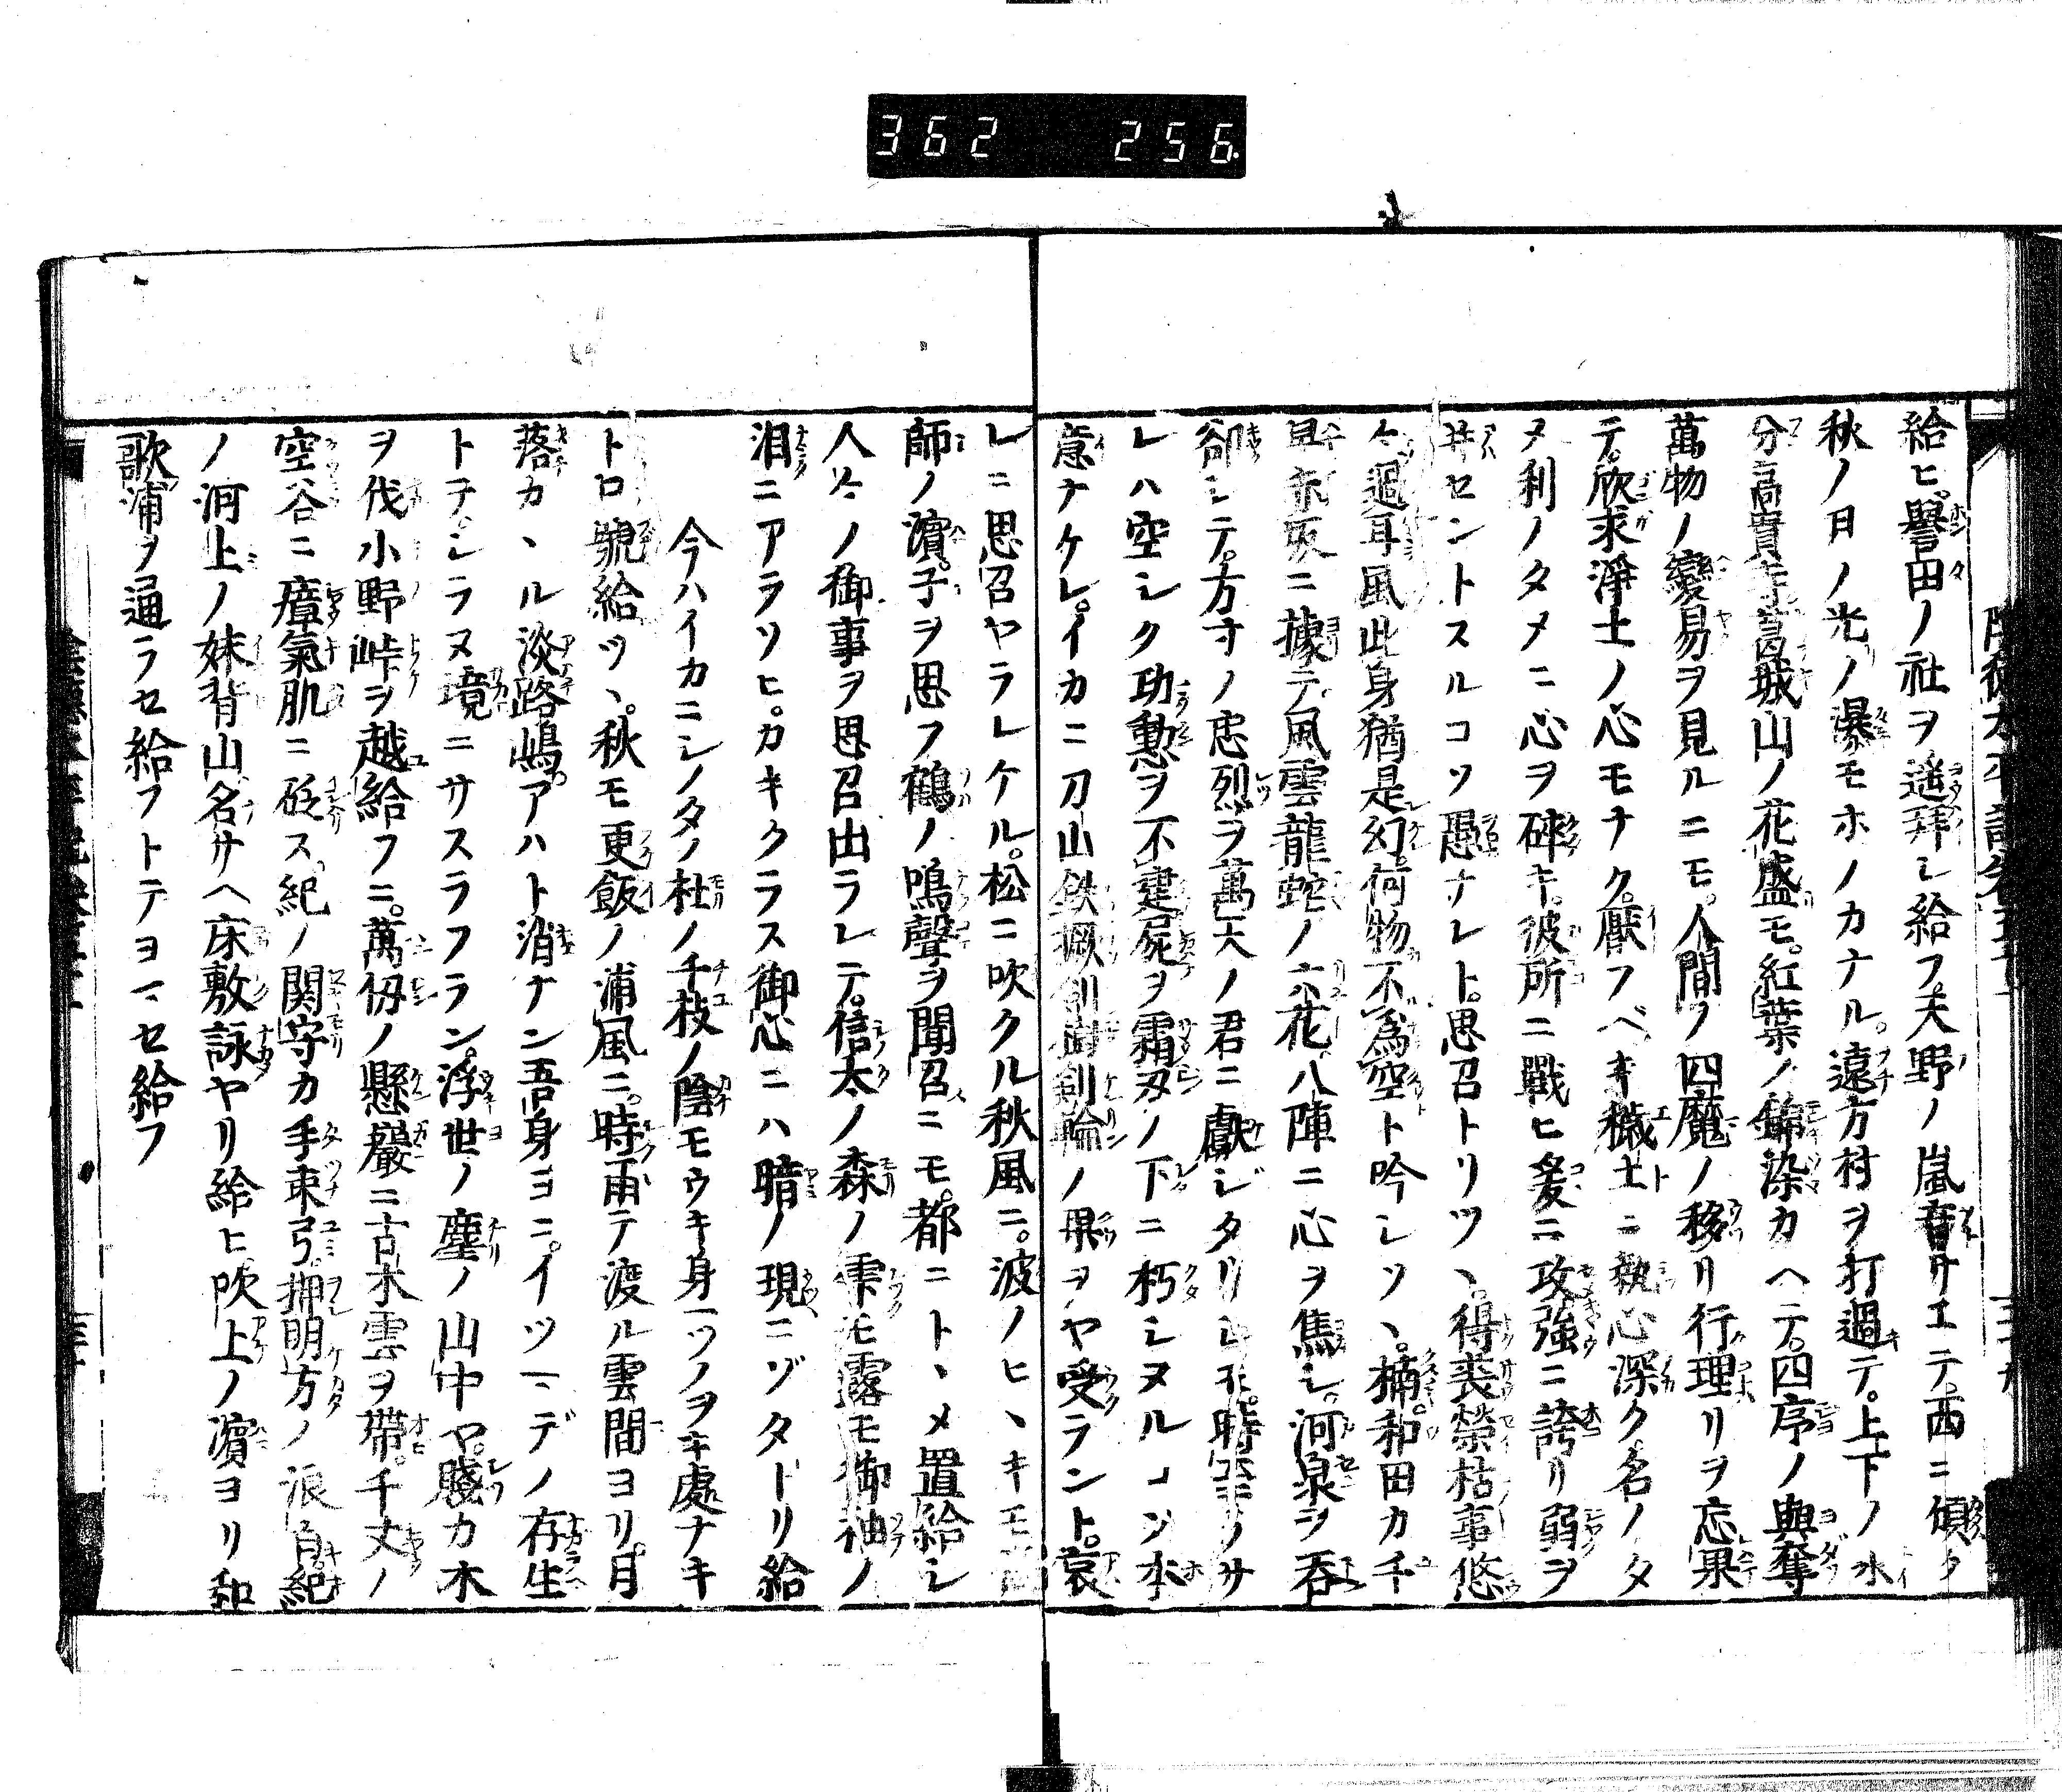 362 256
給ヒ。譽田ノ社ヲ遥拜シ給フ。天野ノ嵐音サエテ。西ニ傾タ
秋ノ日ノ光ノ瀑モホノカナル。遠方村ヲ打過テ。上下ノ水
分高貴寺葛城山ノ花盛モ。紅葉ノ錦染カヘテ。四序ノ與奪
萬物ノ變易ヲ見ルニモ。人間ノ四魔ノ移リ行理リヲ忘果
テ。欣求淨土ノ心モナク。厭フベキ穢土ニ執心深ク名ノタ
メ利ノタメニ心ヲ碎キ。彼所ニ戰ヒ爰ニ攻強ニ誇リ弱ヲ
セントスルコソ愚ナレト。思召トリツヽ。得喪榮枯事悠
々過耳風此身猶是幻何物不為空ト吟シツヽ。楠。和田カ千
赤坂ニ據テ。風雲龍蛇ノ六花八陣ニ心ヲ焦シ。河泉ヲ呑
却シテ。方寸ノ忠烈ヲ萬大ノ君ニ獻ジタリシ時至ラサ
レハ空シク功勲ヲ不建屍ヲ霜刄ノ下ニ朽シヌルコソ本
意ナケレ。イカニ刀山鉄撅釼樹釼輪ノ果ヲヤ受ラント。哀
レニ思召ヤラレケル。松ニ吹クル秋風ニ。波ノヒヽキモ
師ノ濱。子ヲ思フ鶴ノ鳴聲ヲ聞召ニモ。都ニトヽメ置給シ
人々ノ御事ヲ思召出ラレテ。信太ノ森ノ雫モ露モ御袖ノ
泪ニアラソヒ。カキクラス御心ニハ暗ノ現ニゾタトリ給
今ハイカニシノタノ杜ノ千枝ノ陰モウキ身一ツノヲキ處ナキ
ト口號給ツヽ。秋モ更飯ノ浦風ニ。時雨テ渡ル雲間ヨリ。月
落カヽル淡路嶋。アハト消ナン吾身ヨニ。イツマデノ存生
トテシラヌ境ニサスラフラン。浮世ノ塵ノ山中ヤ。賤カ木
ヲ伐小野峠ヲ越給フニ。萬仭ノ懸巖ニ古木雲ヲ帶。千丈ノ
空谷ニ瘴氣肌ニ砭ス。紀ノ関守カ手束弓。拂明方ノ浪白。紀
ノ河上ノ妹背山。名サヘ床敷詠ヤリ給ヒ。吹上ノ濱ヨリ和
歌浦ヲ通ラセ給フトテヨマセ給フ